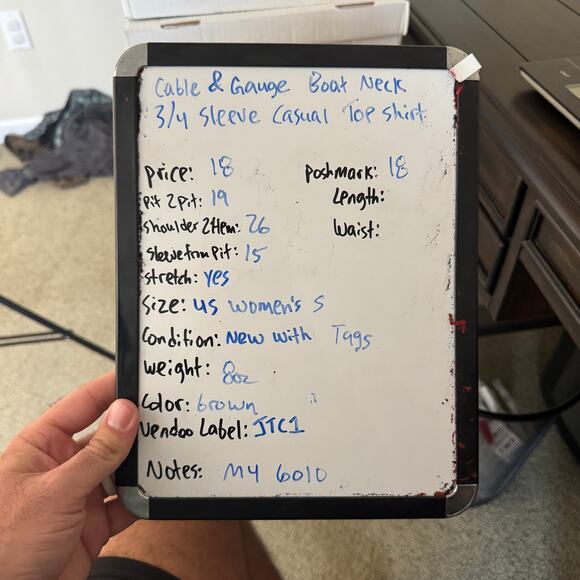 Cable & Gauge Boat Neck
3/4 Sleeve Casual Top Shirt
price: 18
Poshmark: 18
Pit 2 Pit: 19
Length:
Shoulder 2 Hem: 26
Waist:
Sleeve from Pit: 15
Stretch: yes
Size: US women's S
Condition: New with Tags
Weight: 8oz
Color: brown
Vendoo Label: JTC1
Notes: MY 6010